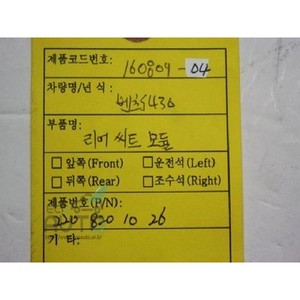 제품코드번호: 160809-04
차량명/년 식:
벤츠430
부품명:
리어 씨트 모듈
□ 앞쪽(Front) □ 운전석(Left)
□ 뒤쪽(Rear) □ 조수석(Right)
제품번호(P/N):
220 820 10 26
기 타: